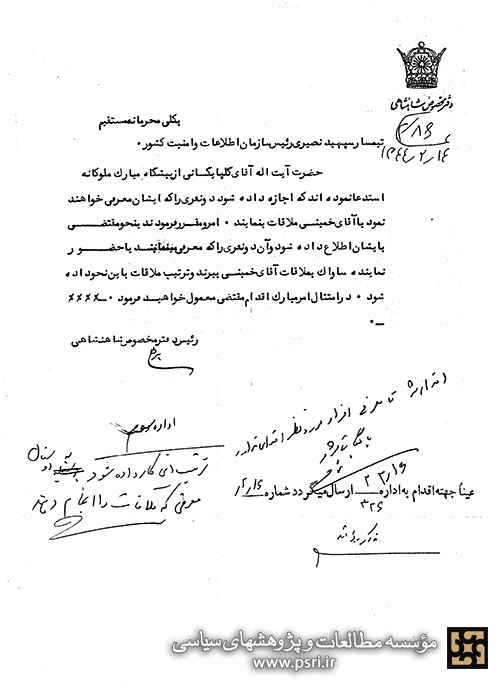 دفتر مخصوص شاهنشاهی
۲/۸۶
۱۳۴۴/۲/۱۴
بکلی محرمانه مستقیم
تیمسار سپهبد نصیری رئیس سازمان اطلاعات و امنیت کشور ۰
حضرت آیت اله آقای گلپایگانی از پیشگاه مبارک ملوکانه
استدعا نموده اند که اجازه داده شود دو نفری را که ایشان معرفی خواهند
نمود با آقای خمینی ملاقات بنمایند ۰ امر و مقرر فرمودند بنحو مقتضی
بایشان اطلاع داده شود و آن دو نفری را که معرفی مینمایند با حضور
نماینده ساواک بملاقات آقای خمینی ببرند و ترتیب ملاقات باین نحو داده
شود ۰ در امتثال امر مبارک اقدام مقتضی معمول خواهید فرمود ۰ـXXXX
ـ۰
رئیس دفتر مخصوص شاهنشاهی
اداره سوم
ترتیب این کار داده شود
معرفی که ملاقات را انجام دهند
افراد مورد نظر
عیناً جهته اقدام به اداره ۳۲۶ ارسال میگردد شماره
مؤسسه مطالعات و پژوهشهای سیاسی
www.psri.ir